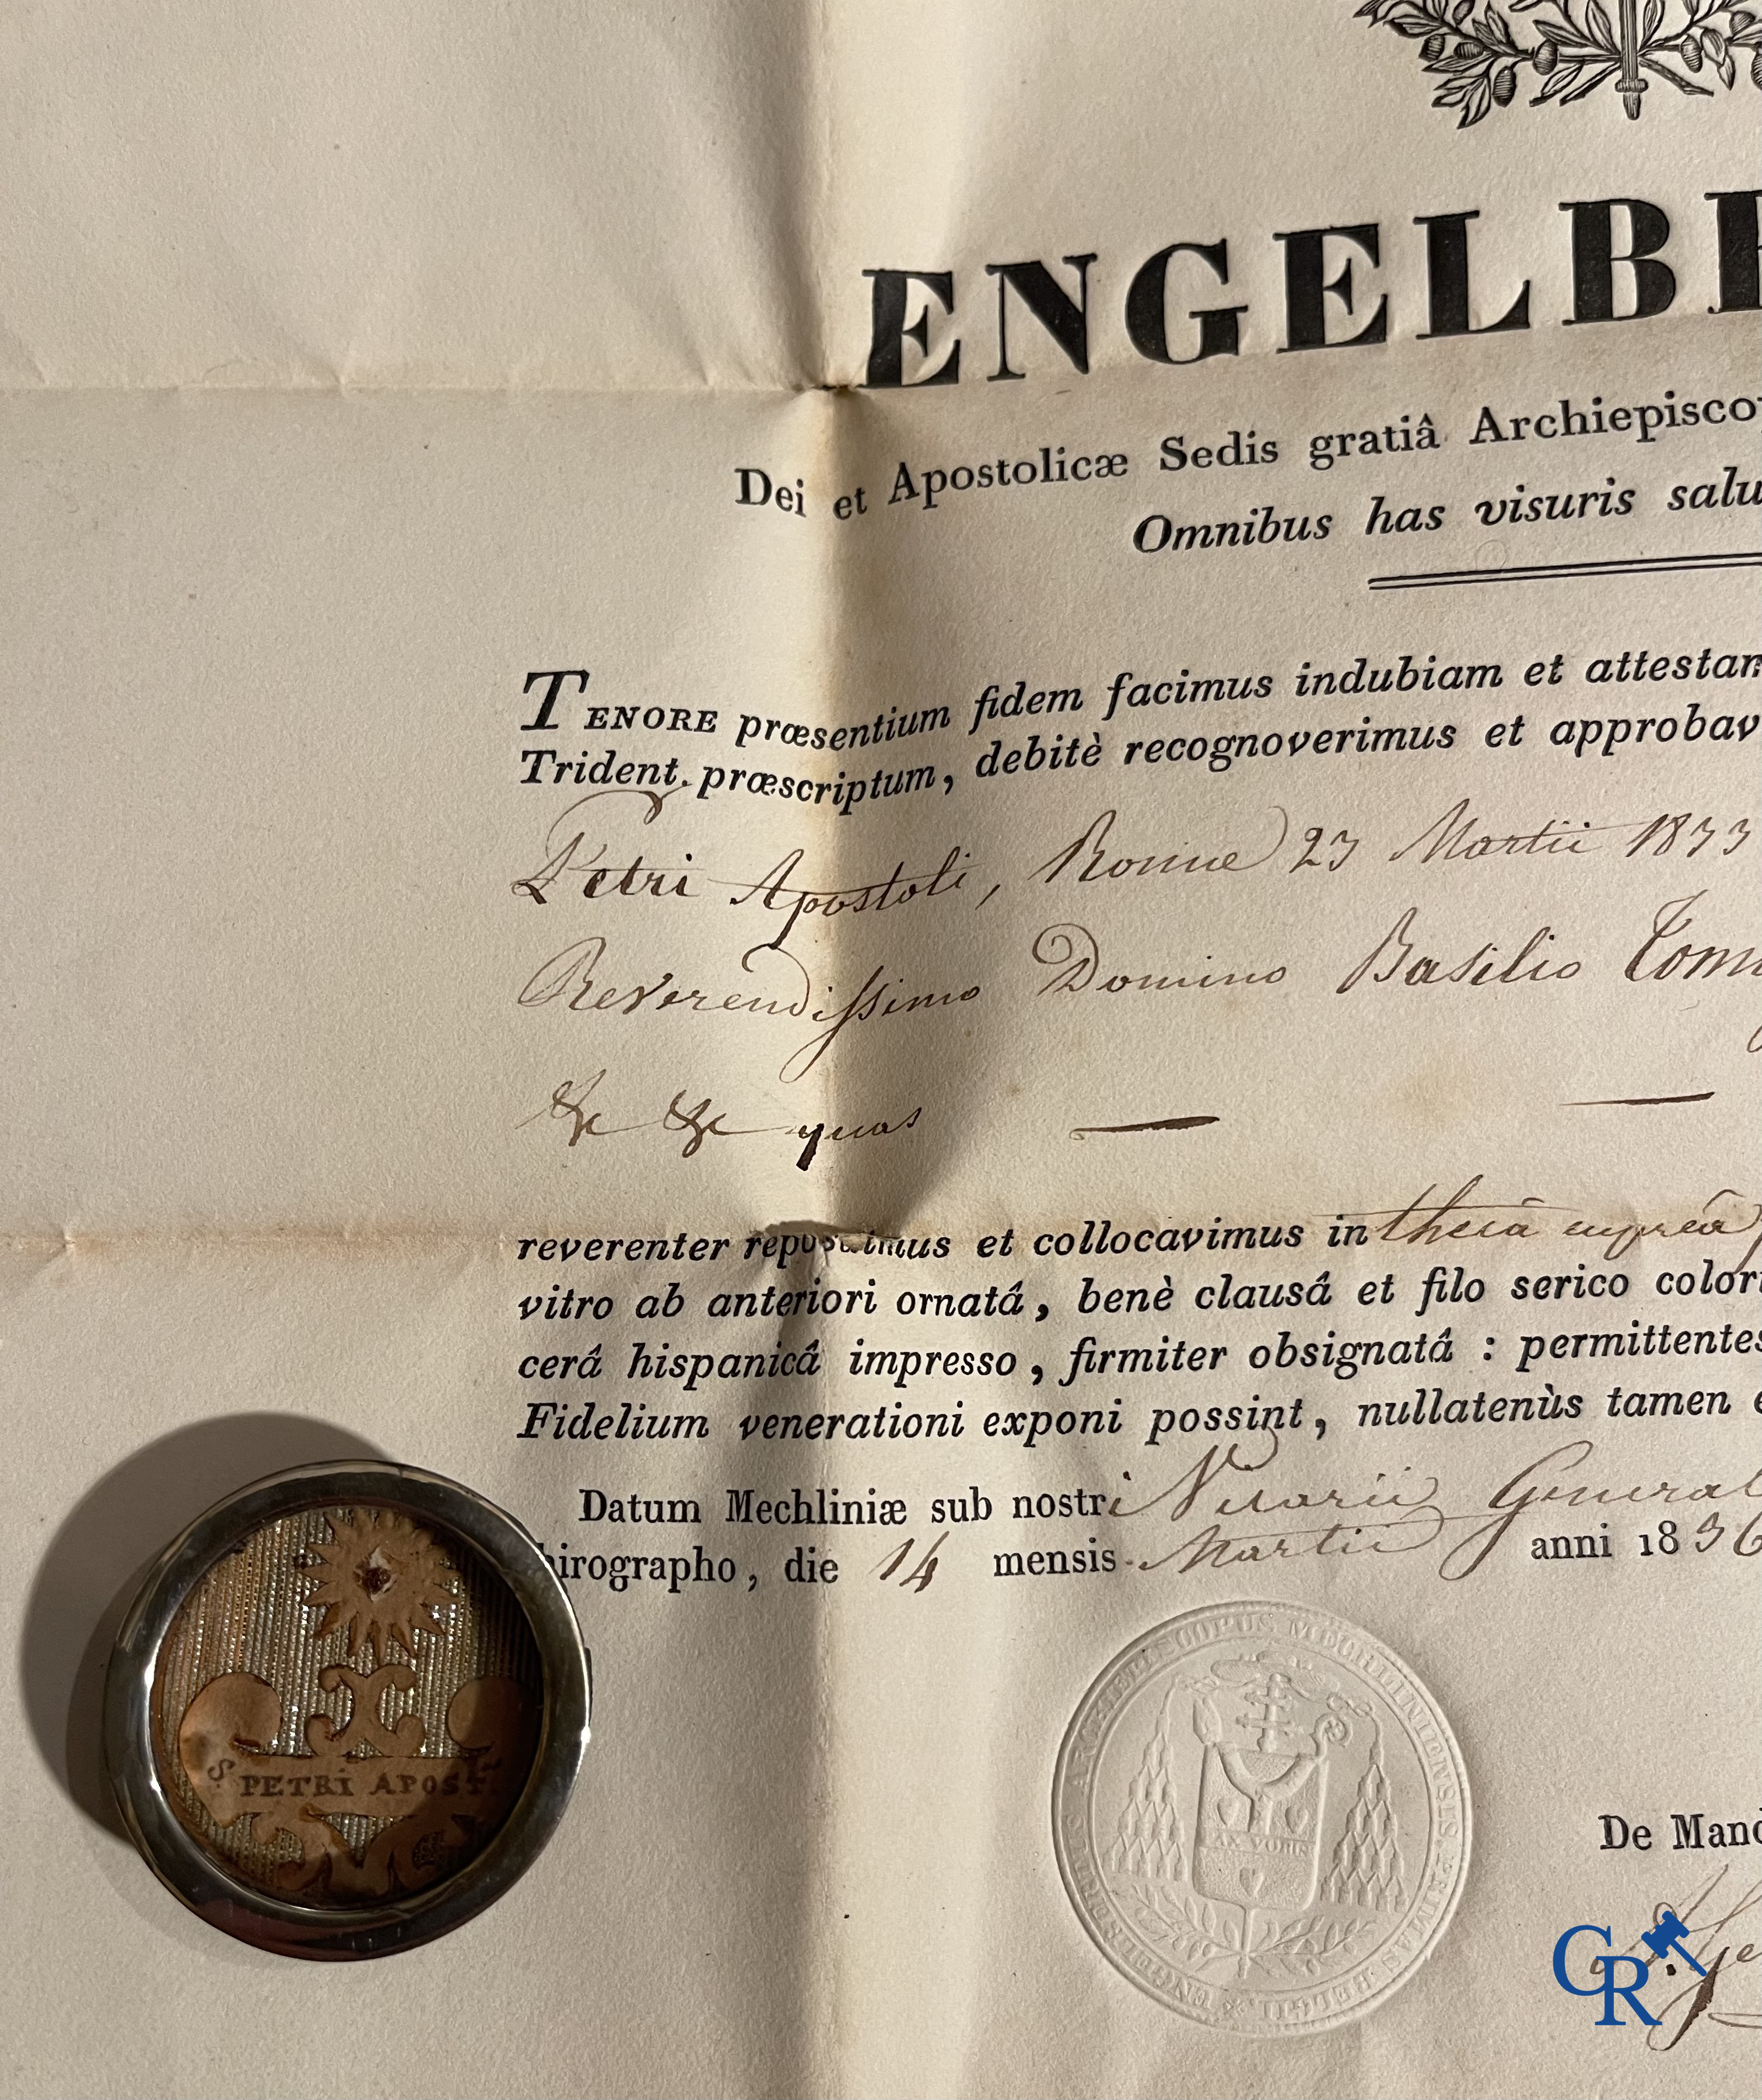 ENGELBE
Dei et Apostolicæ Sedis gratiâ Archiepisco
Omnibus has visuris salu
TENORE præsentium fidem facimus indubiam et attestam
Trident. præscriptum, debitè recognoverimus et approbav
Petri Apostoli, Romæ 23 Martii 1833
Reverendissimo Domino Basilio Tom
&c &c quas
reverenter reposuimus et collocavimus in thecâ cupreâ
vitro ab anteriori ornatâ, benè clausâ et filo serico colori
cerâ hispanicâ impresso, firmiter obsignatâ : permittentes
Fidelium venerationi exponi possint, nullatenùs tamen e
Datum Mechliniæ sub nostri Vicarii General
hirographo, die 14 mensis Martii anni 1836
S. PETRI APOST.
ENGELBERTUS ARCHIEPISCOPUS MECHLINIENSIS PRIMAS BELGII
PAX VOBIS
De Mand
GR